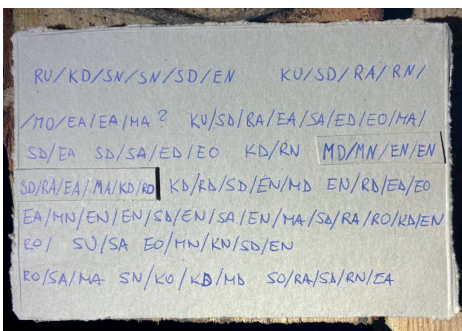 RU/KD/SN/SN/SD/EN KU/SD/RA/RN/
/MO/EA/EA/MA? KU/SD/RA/EA/SA/ED/EO/MA/
SD/EA SD/SA/ED/EO KD/RN MD/MN/EN/EN
SD/RA/EA/MA/KD/RO KD/RD/SD/EN/MD EN/RD/ED/EO
EA/MN/EN/EN/SD/EN/SA/EN/MA/SD/RA/RO/KD/EN
RO/ SU/SA EO/MN/KN/SD/EN
RO/SA/MA SN/KO/KD/MD SO/RA/SD/RN/EA